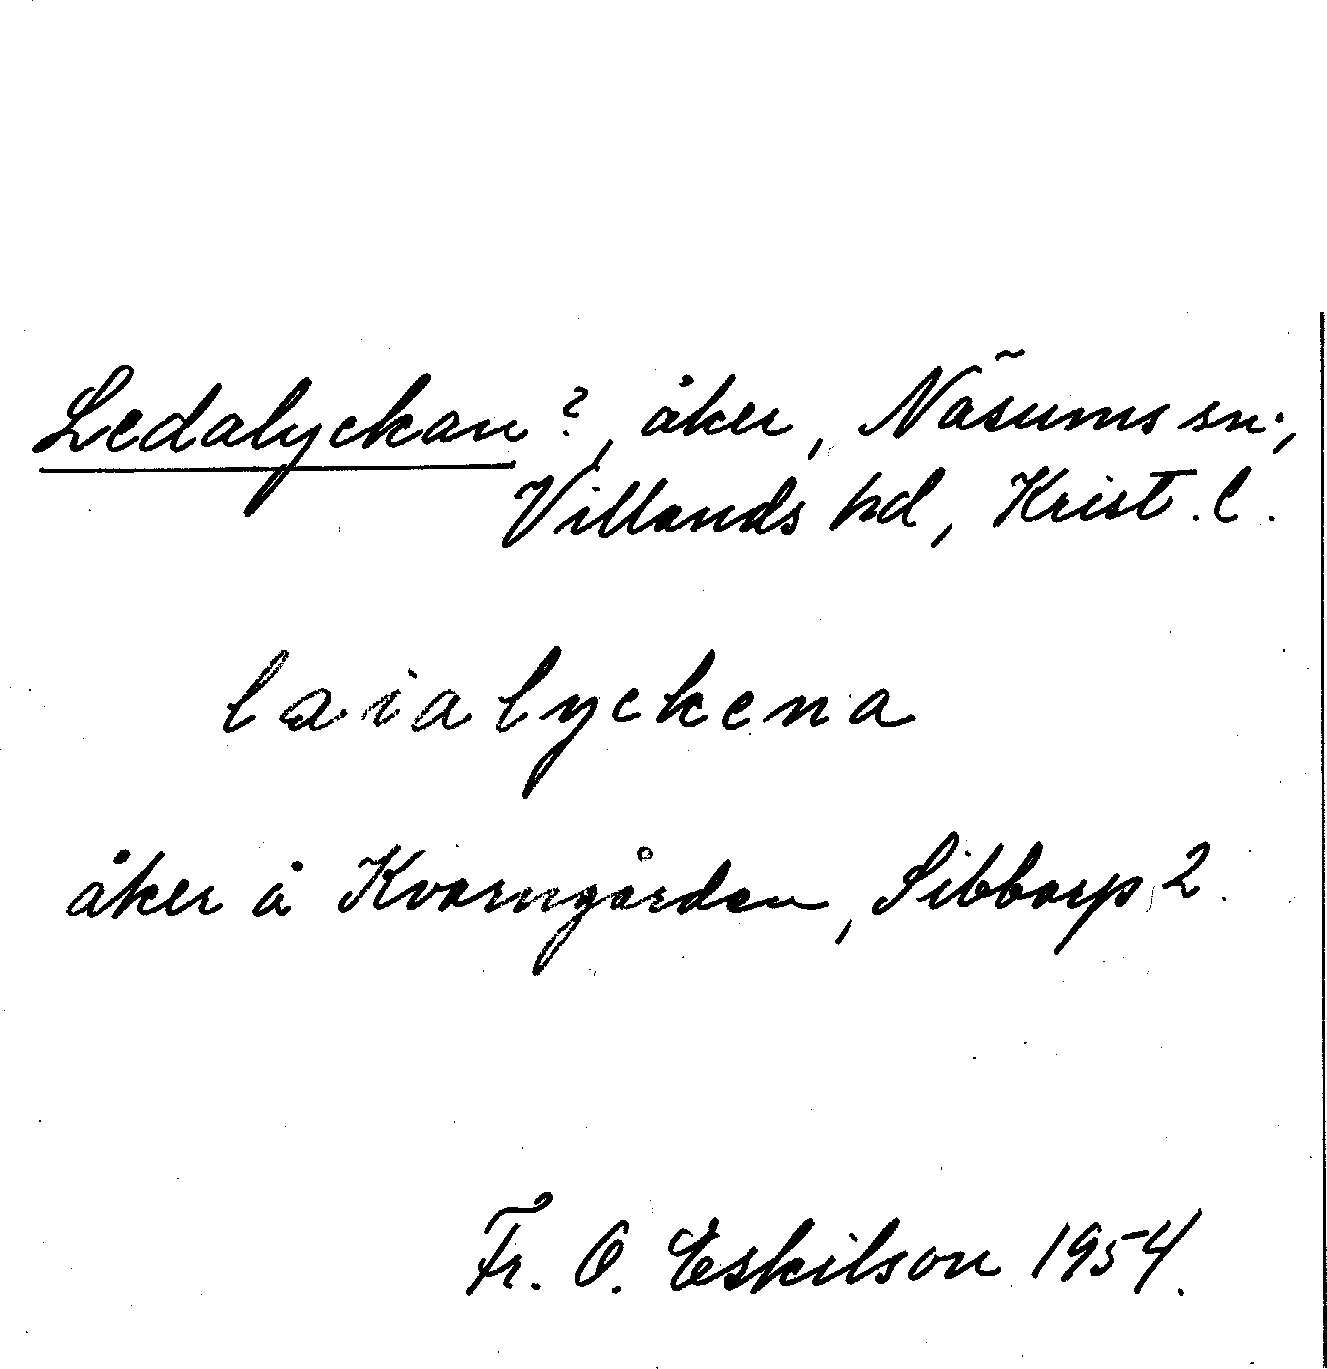 Ledalyckan?, åker, Näsums sn.,
Villands hd, Krist. l.
laialyckena
åker å Kvarngården, Sibbarp 2.
Fr. O. Eskilson 1954.